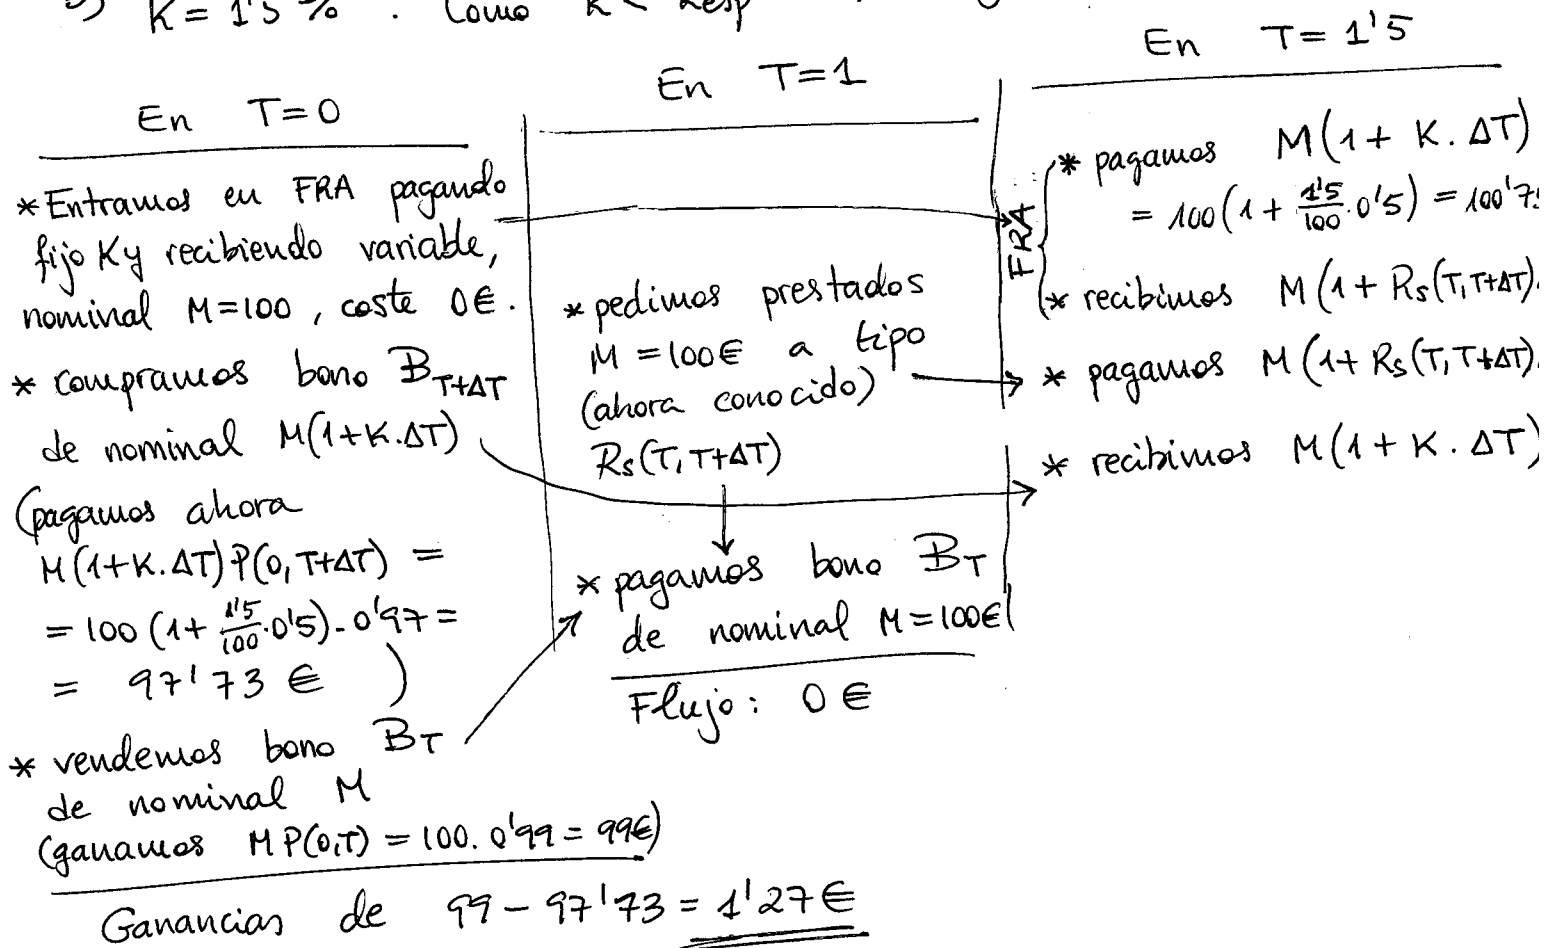 K = 1'5 % . Como K <
En T=0
* Entramos en FRA pagando
fijo K y recibiendo variable,
nominal M=100 , coste 0€.
* compramos bono B_{T+ΔT}
de nominal M(1+K.ΔT)
(pagamos ahora
M(1+K.ΔT) P(0,T+ΔT) =
= 100 (1+ 1'5/100 .0'5) . 0'97 =
= 97'73 € )
* vendemos bono B_T
de nominal M
(ganamos M P(0,T) = 100. 0'99 = 99€)
Ganancias de 99 - 97'73 = 1'27€
En T=1
* pedimos prestados
M = 100€ a tipo
(ahora conocido)
Rs(T,T+ΔT)
* pagamos bono B_T
de nominal M=100€
Flujo: 0 €
En T= 1'5
FRA
* pagamos M(1+ K. ΔT)
= 100(1+ 1'5/100 .0'5) = 100'7
* recibimos M(1+ Rs(T,T+ΔT).
* pagamos M(1+ Rs(T,T+ΔT).
* recibimos M(1+ K. ΔT)